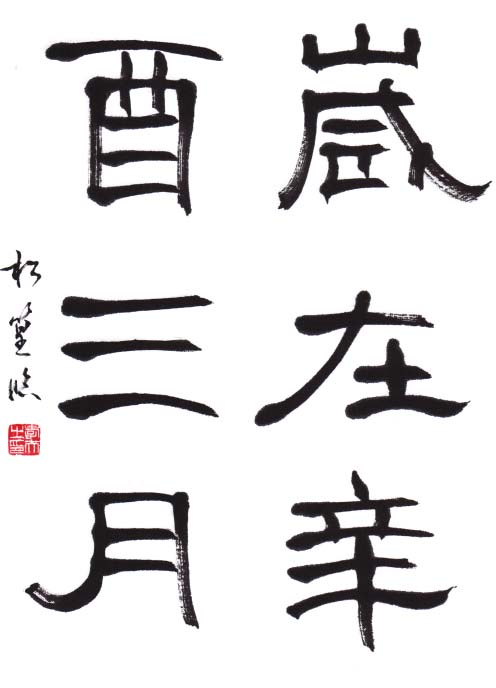 歲在辛
酉三月
松篁臨